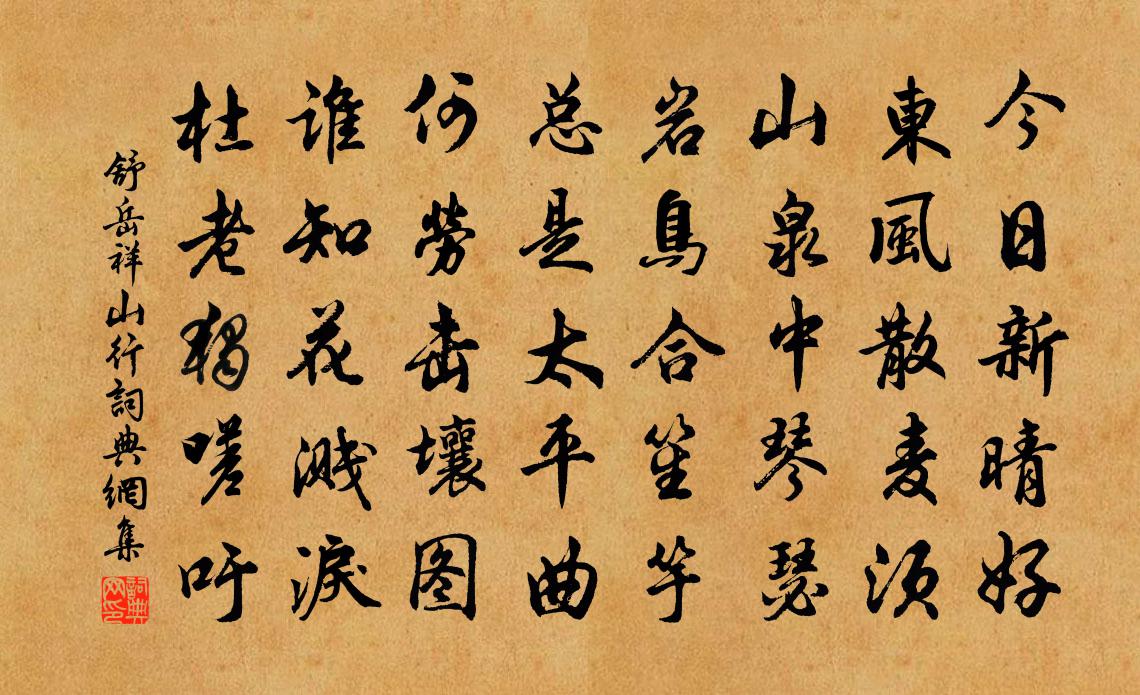 今日新晴好
東風散麦须
山泉中琴瑟
岩鳥合笙竽
总是太平曲
何勞击壤图
谁知花溅淚
杜老獨嗟吁
舒岳祥山行詞典網集
詞典网印